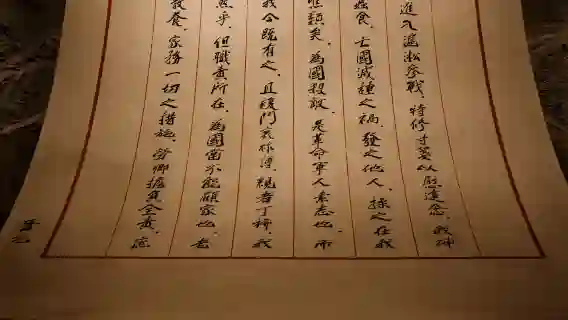 進入淞滬參戰，特修寸箋以慰遠念。我神
蠶食，亡國滅種之禍，發之他人，操之在我
惟穎矣。為國殺敵，是革命軍人素志也，而
我今既有之，且後門衰祚薄，親者丁稀，我
然乎，但職責所在，為國當不能顧家也。老
教養，家務一切之措施，勞卿擔負全責，